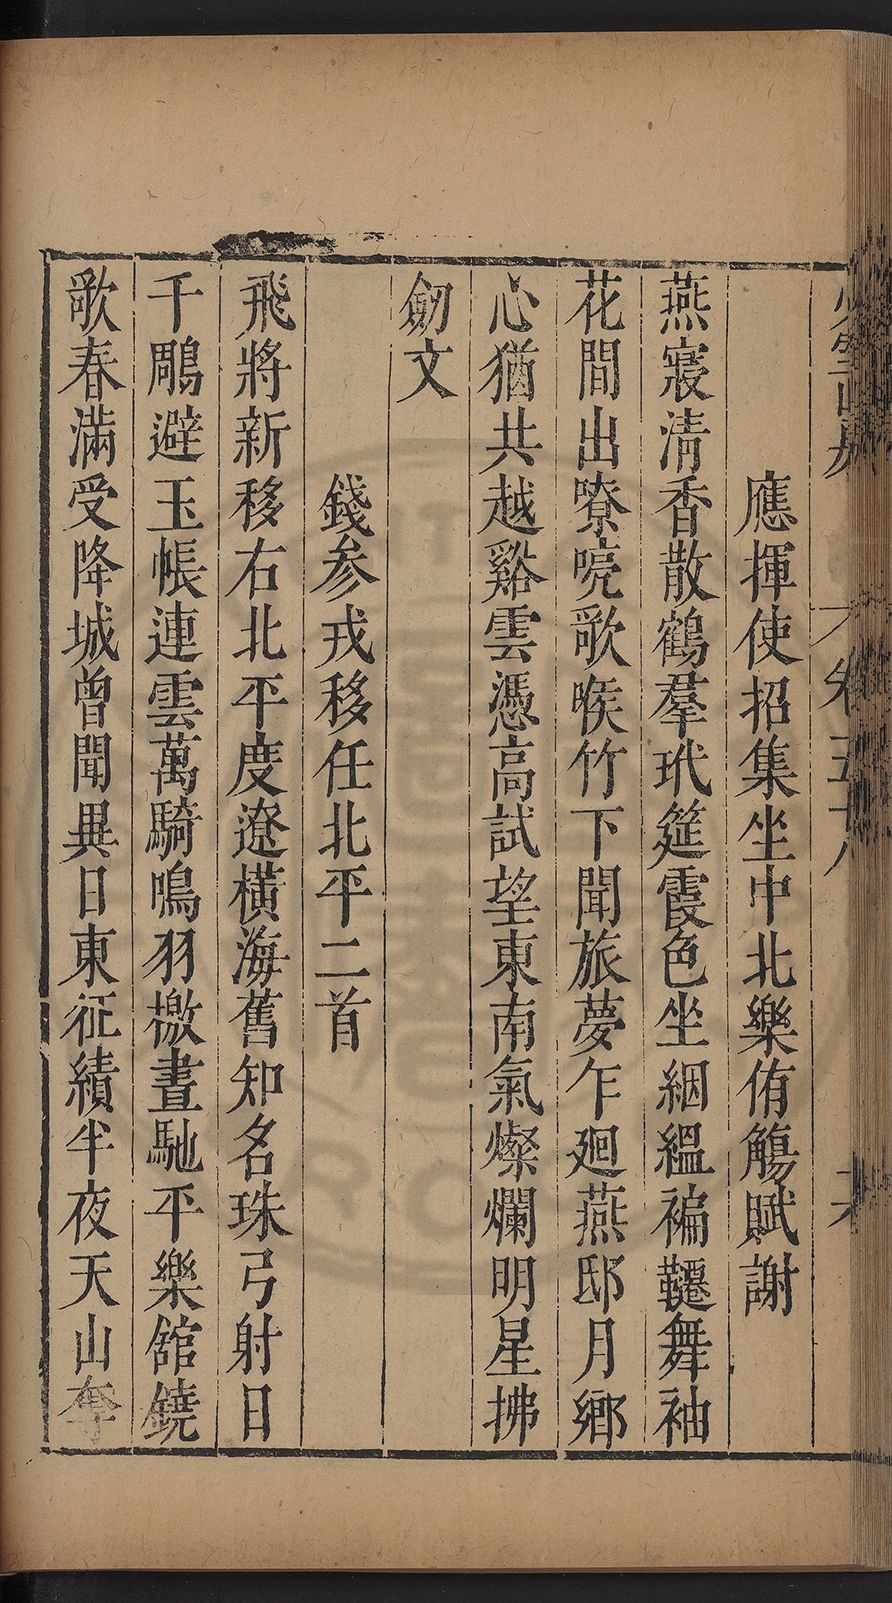 少室山房
卷五十八
應揮使招集坐中北樂侑觴賦謝
燕寢清香散鶴羣玳筵霞色坐絪縕褊韆舞袖
花間出嘹喨歌喉竹下聞旅夢乍廻燕邸月鄉
心猶共越谿雲憑高試望東南氣燦爛明星拂
劒文
錢參戎移任北平二首
飛將新移右北平度遼橫海舊知名珠弓射日
千鵰避玉帳連雲萬騎鳴羽檄晝馳平樂舘鐃
歌春滿受降城曾聞異日東征績半夜天山奪